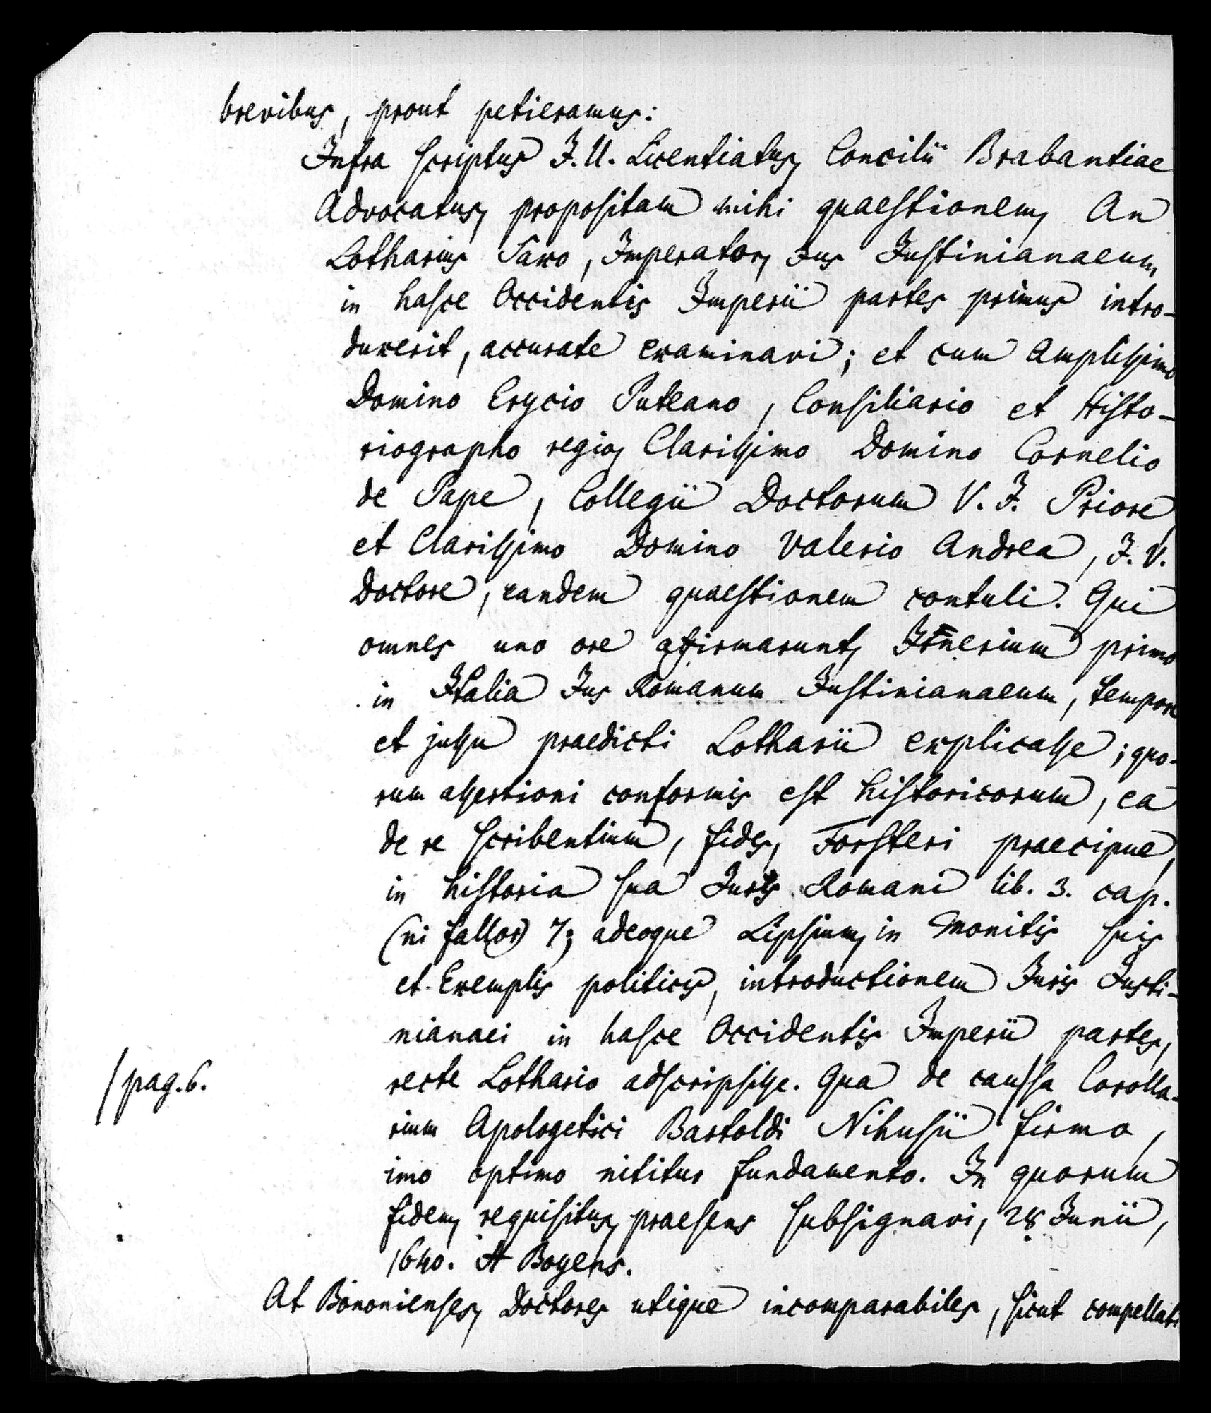 brevibus, prout petieramus:
Infra scriptus J. U. Licentiatus, Concilii Brabantiae
Advocatus, propositam mihi quaestionem, An
Lotharius Saxo, Imperator, Jus Justinianaeum,
in hasce Occidentis Imperii partes primus intro-
duxerit, accurate examinavi; et cum Amplissimo
Domino Erycio Puteano, Consiliario et Histo-
riographo regio, Clarissimo Domino Cornelio
de Pape, Collegii Doctorum V. J. Priore,
et Clarissimo Domino Valerio Andrea, J. V.
Doctore, eandem quaestionem contuli. Qui
omnes uno ore affirmarunt, Irnerium primo
in Italia Jus Romanum Justinianaeum, tempore
et jussu praedicti Lotharii explicasse; quo-
rum assertioni conformis est historicorum, ea
de re scribentium, fides, Forsteri praecipue,
in historia sua Juris Romani lib. 3. cap.
(ni fallor) 7; adeoque Lipsium, in Monitis suis
et Exemplis politicis, introductionem Juris Justi-
nianaei in hasce Occidentis Imperii partes,
recte Lothario adscripsisse. Qua de caussa Corolla-
/pag. 6.
rium Apologetici Bartoldi Nihusii firmo,
imo optimo nititur fundamento. In quorum
fidem, requisitus, praesens subsignavi, 28 Junii,
1640. A Boyens.
At Bononienses, Doctores utique incomparabiles, sicut compellati